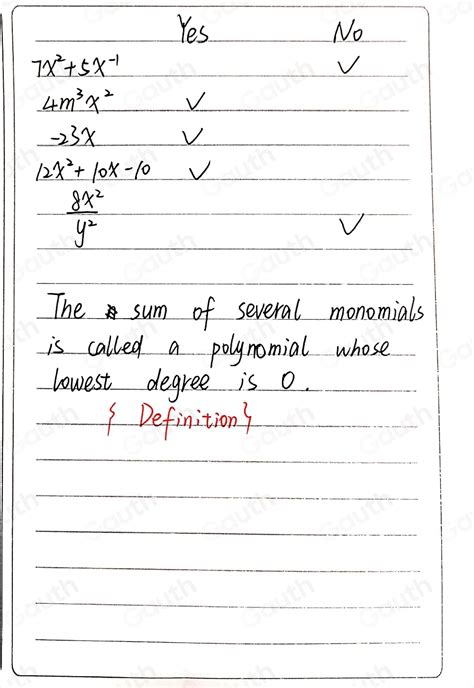 Yes No
7x²+5x⁻¹ ✓
4m³x² ✓
-23x ✓
12x²+10x-10 ✓
8x²
y² ✓
The sum of several monomials
is called a polynomial whose
lowest degree is 0.
{ Definition }